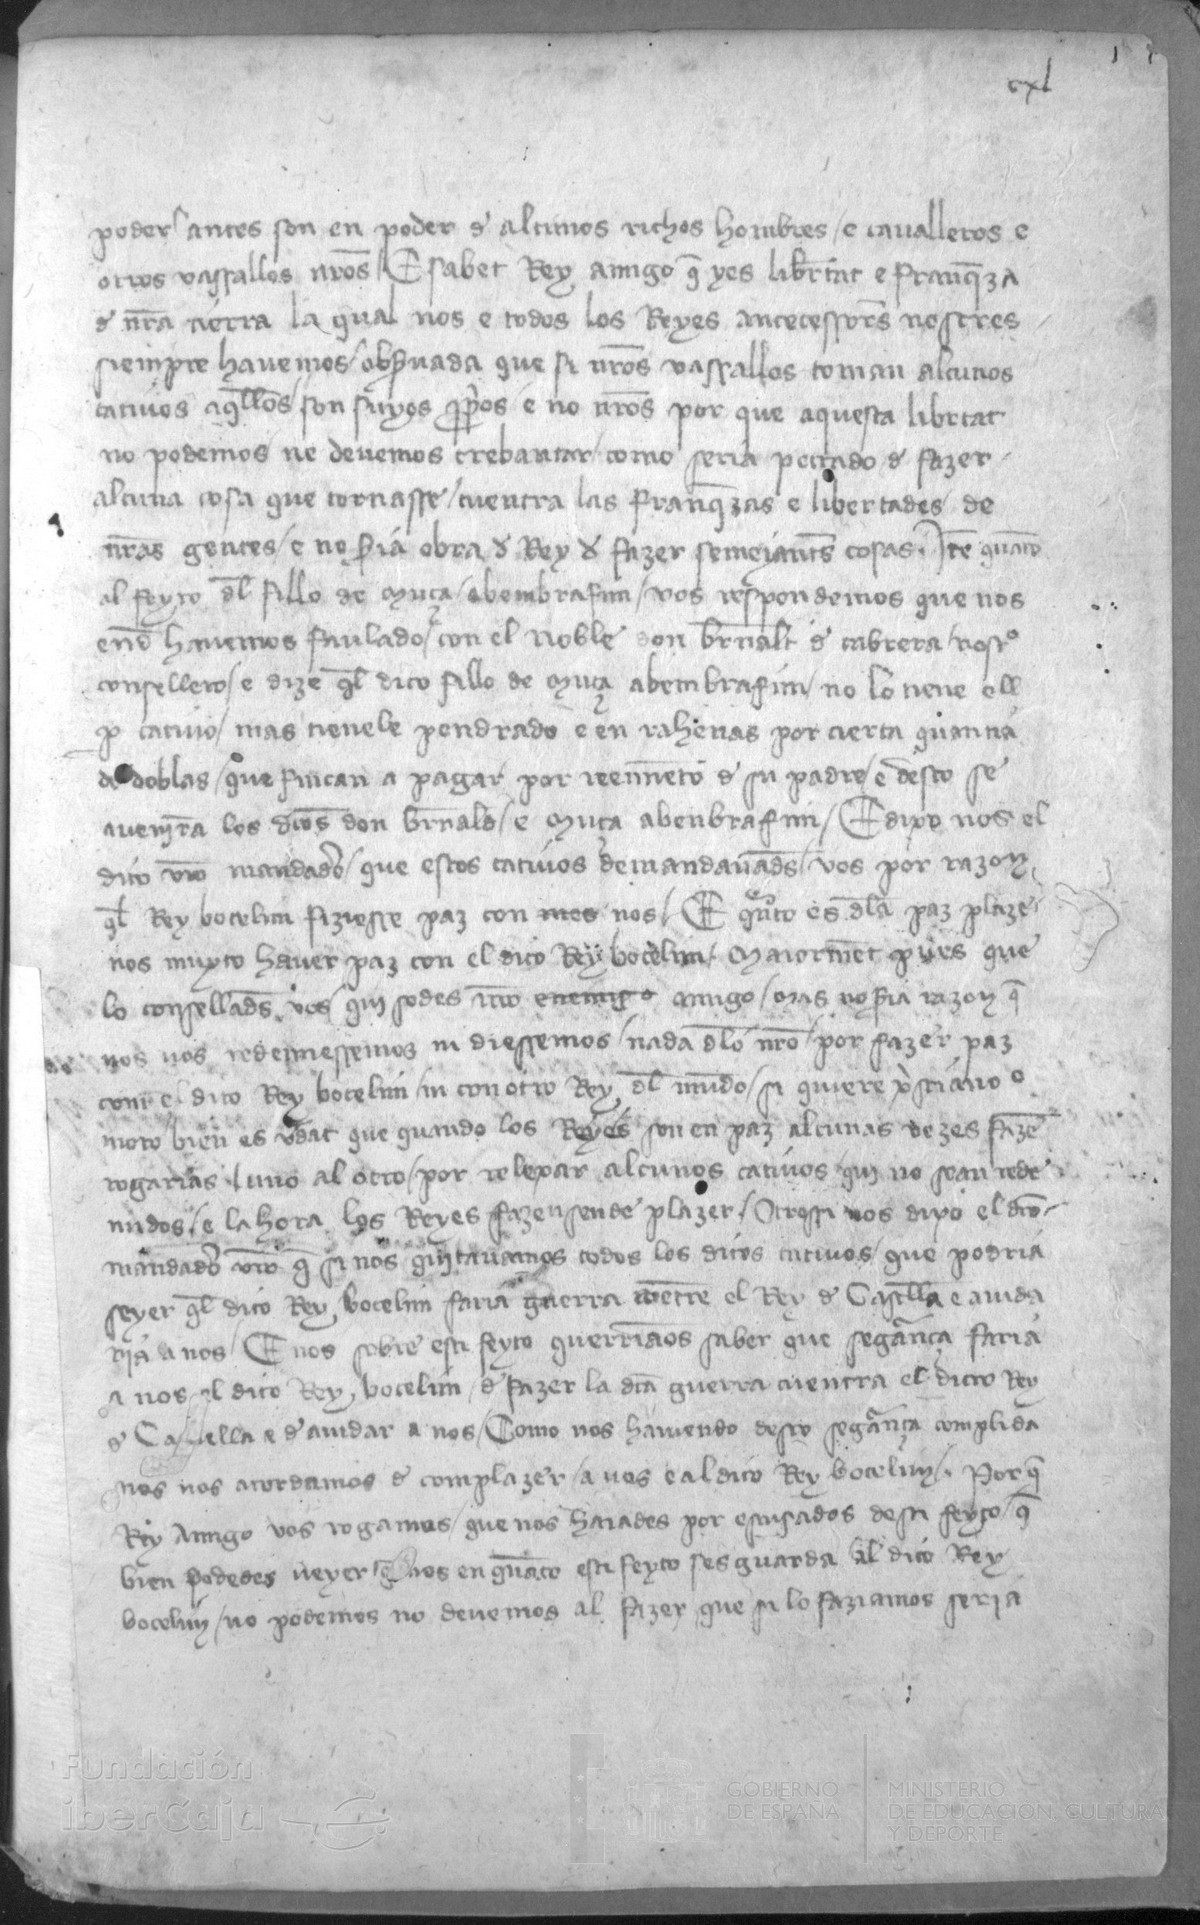 cxl
poder antes son en poder d alcunos richos hombres / e cavalleros e
otros vassallos nros / E sabet Rey amigo q̄ yes librtat e franq̄za
d nr̄a tierra la qual nos e todos los Reyes antecessors̄ nostres
siempre havemos obs̄vada que si nros vassallos toman alcunos
cativos aq̄llos son suyos pp̄os e no nros por que aquesta librtat
no podemos ne devemos crebantar / como seria peccado d fazer
alcuna cosa que tornasse / cuentra las franq̄zas e libertades de
nr̄as gentes / e no s̄ia obra d Rey d fazer semeiants̄ cosas. Ite quāto
al feyto dl̄ fillo de Muça / abembrafim / vos respondemos que nos
end̄ havemos faulado / con el noble don br̄nalt d cabrera / nost̊
consellero / e dize q̄l dito fillo de Muça abembrafim / no lo tiene ell
p̄ cativo / mas tienele pendrado e en rahenas por cierta quantia
de doblas / que fincan a pagar por reēmeto d su padre / e desto se
avenira los dc̄os don br̄nald / e Muça abenbrafim / E dixo nos el
dito vr̄o mandadō / que estos cativos demandavads̄ / vos por razon
q̄l Rey bocelim fiziesse paz con mes nos / E q̄nto es dla paz plaze
nos muyto haver paz con el dito Rey bocelim / Maiorm̄et pues que
lo consellads̄ vos qui sodes nr̄o enemigo amigo / mas no s̄ia razon q̄
nos nos redemiessemos ni diessemos / nada dlo nr̄o / por fazer paz
con el dito Rey bocelim / ni con otro Rey dl̄ mūdo / si quiere xp̄stiano o
moro bien es vdat que quando los Reyes son en paz alcunas vezes fazē
rogarias luno al otro / por relexar alcunos cativos qui no sean rede
midos / e la hora los Reyes fazen sende plazer / Otrossi nos dixo el dito
mandadō vr̄o q̄ si nos quitavamos todos los ditos cativos / que podria
seyer q̄l dito Rey bocelim faria guerra cuentre el Rey d Castella e aiuda
ria a nos / E nos sobre esti feyto querriamos saber que segr̄ança faria
a nos el dito Rey bocelim / d fazer la dc̄a guerra cuentra el dicto Rey
d Castella e d aiudar a nos / Como nos haviendo desto segr̄ança complida
nos nos acordamos d complazer / a vos e al dito Rey bocelim / Por q̄
Rey Amigo vos rogamos / que nos haiades por escusados desti feyto / q̄
bien podedes veyer q̄ nos en quāto esti feyto sesguarda al dito Rey
bocelim / no podemos no devemos al fazer que si lo faziamos seria
Fundación
iberCaja
GOBIERNO
DE ESPAÑA
MINISTERIO
DE EDUCACIÓN, CULTURA
Y DEPORTE